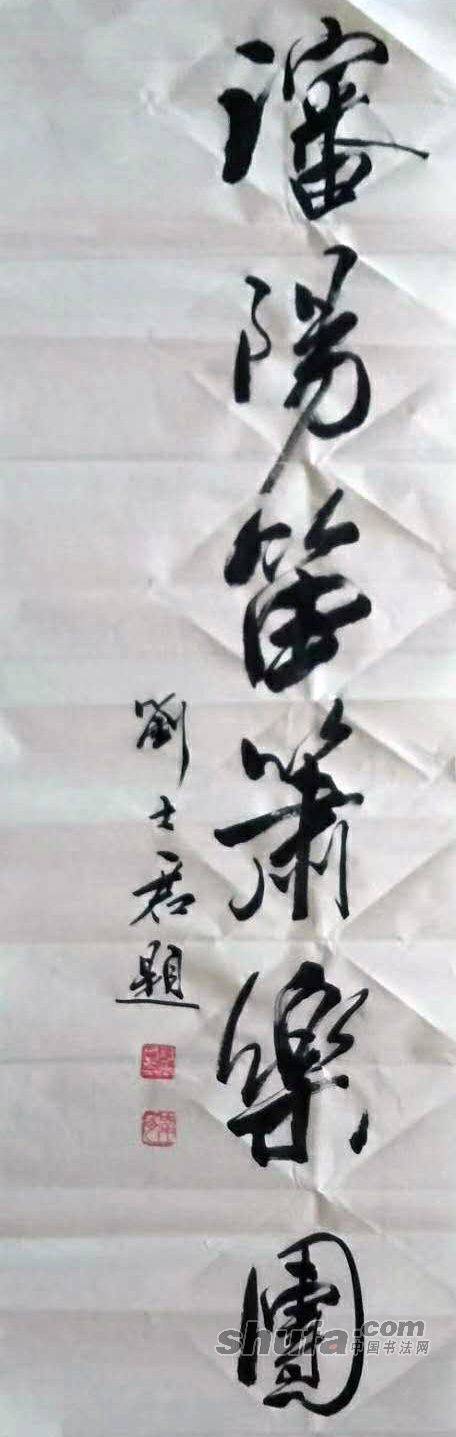 瀋陽笛簫樂團
劉士君題
shufa.com
中国书法网